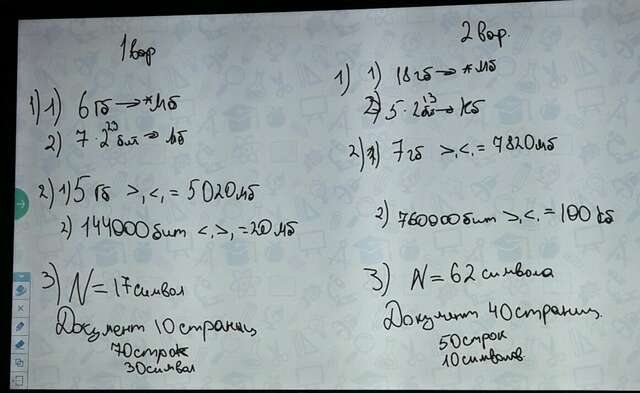 1 вар
1) 1) 6 Гб → *Мб
2) 7·2²³ бит → Мб
2) 1) 5 Гб >,<,= 5020 мб
2) 144000 бит <,>,= 20 мб
3) N = 17 символ
Документ 10 страниц
70 строк
30 символ
2 вар.
1) 1) 18 гб → *Мб
2) 5·2¹³ → Кб
2) 1) 7 гб >,<,= 7820 мб
2) 760000 бит >,<,= 100 кб
3) N = 62 символа
Документ 40 страниц.
50 строк
10 символов